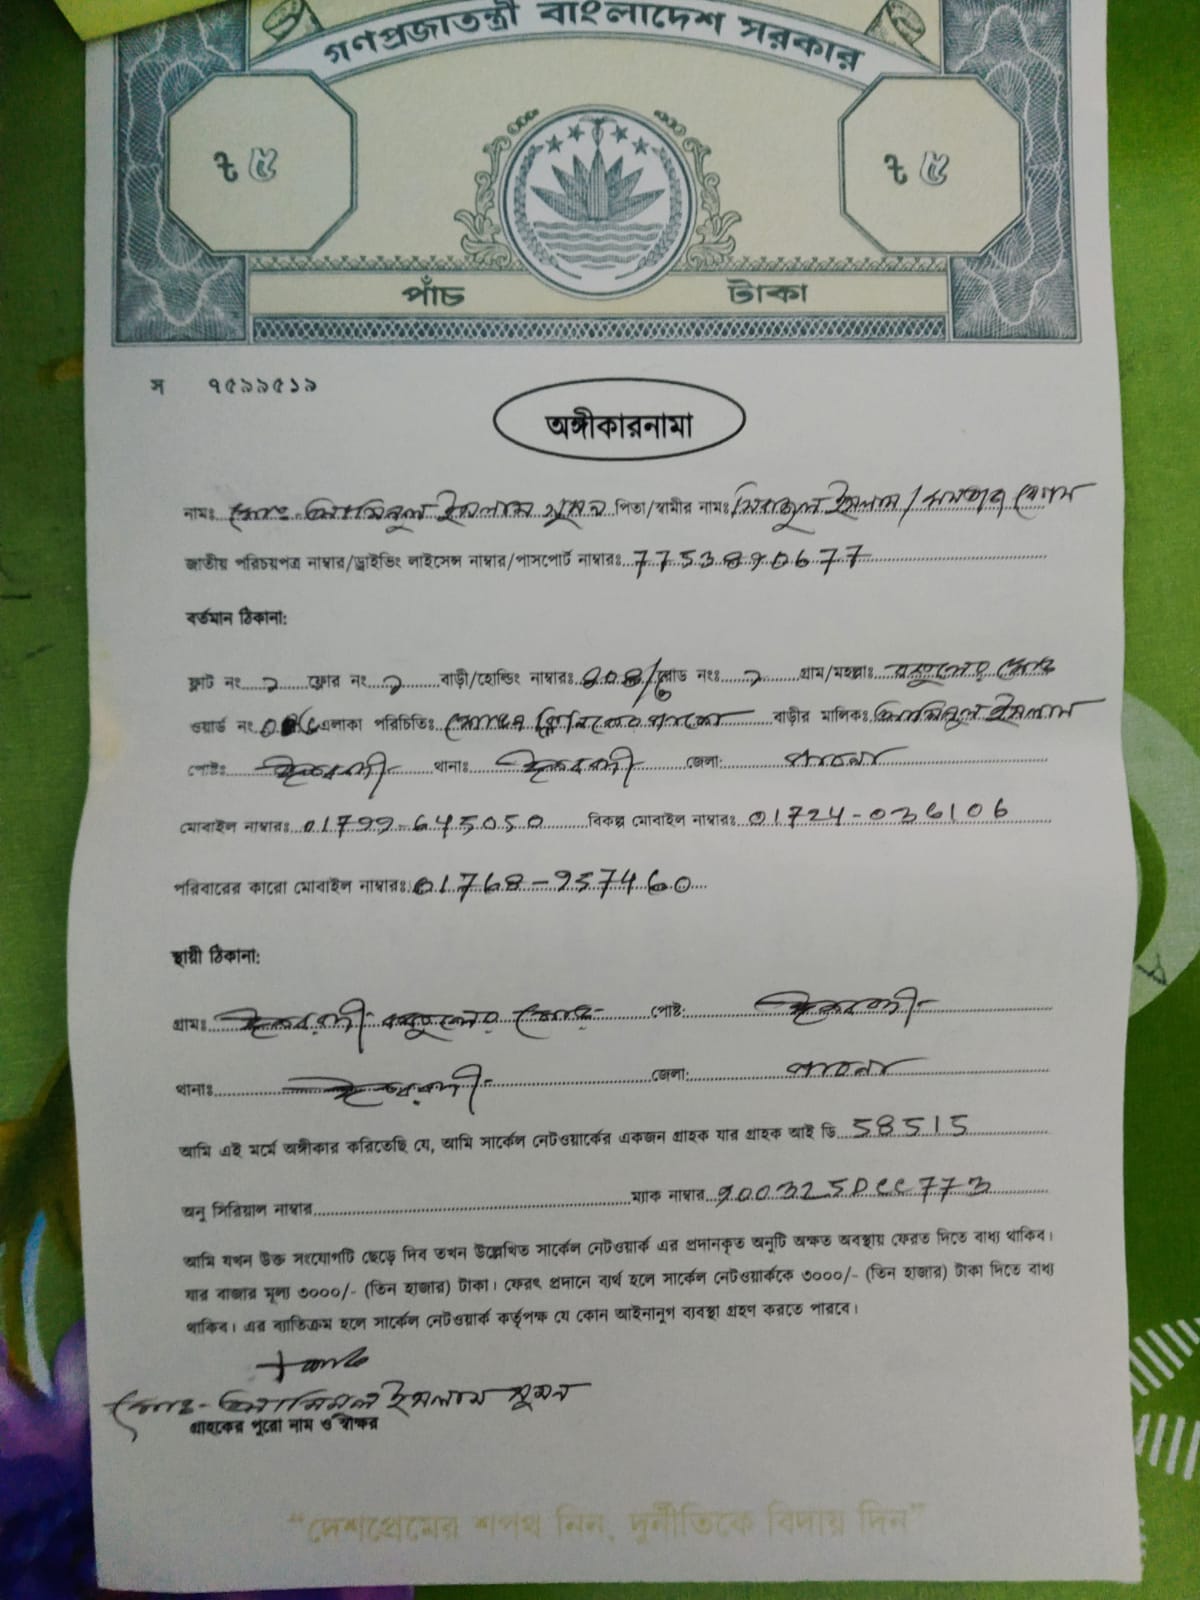 গণপ্রজাতন্ত্রী বাংলাদেশ সরকার
ট ৫ ট ৫
পাঁচ টাকা
স ৭৫৯৯৫১৯
অঙ্গীকারনামা
নামঃ মোঃ ইসলাম সুমন পিতা/স্বামীর নামঃ সিরাজুল ইসলাম /
জাতীয় পরিচয়পত্র নাম্বার/ড্রাইভিং লাইসেন্স নাম্বার/পাসপোর্ট নাম্বারঃ 7753890677
বর্তমান ঠিকানা:
ফ্লাট নং ২ ফ্লোর নং ২ বাড়ী/হোল্ডিং নাম্বারঃ রোড নং ২ গ্রাম/মহল্লাঃ মোড়
ওয়ার্ড নং এলাকা পরিচিতিঃ বাড়ীর মালিকঃ ইসলাম
পোষ্টঃ ঈশ্বরদী থানাঃ ঈশ্বরদী জেলা: পাবনা
মোবাইল নাম্বারঃ 01799-645050 বিকল্প মোবাইল নাম্বারঃ 01724-036106
পরিবারের কারো মোবাইল নাম্বারঃ 01768-957460
স্থায়ী ঠিকানা:
গ্রামঃ ঈশ্বরদী মোড় পোষ্ট: ঈশ্বরদী
থানাঃ ঈশ্বরদী জেলা: পাবনা
আমি এই মর্মে অঙ্গীকার করিতেছি যে, আমি সার্কেল নেটওয়ার্কের একজন গ্রাহক যার গ্রাহক আই ডি 58515
অনু সিরিয়াল নাম্বার ম্যাক নাম্বার 900325DCC773
আমি যখন উক্ত সংযোগটি ছেড়ে দিব তখন উল্লেখিত সার্কেল নেটওয়ার্ক এর প্রদানকৃত অনুটি অক্ষত অবস্থায় ফেরত দিতে বাধ্য থাকিব।
যার বাজার মূল্য ৩০০০/- (তিন হাজার) টাকা। ফেরৎ প্রদানে ব্যর্থ হলে সার্কেল নেটওয়ার্ককে ৩০০০/- (তিন হাজার) টাকা দিতে বাধ্য
থাকিব। এর ব্যাতিক্রম হলে সার্কেল নেটওয়ার্ক কর্তৃপক্ষ যে কোন আইনানুগ ব্যবস্থা গ্রহণ করতে পারবে।
মোঃ- ইসলাম সুমন
গ্রাহকের পুরো নাম ও স্বাক্ষর
“দেশপ্রেমের শপথ নিন, দুর্নীতিকে বিদায় দিন”